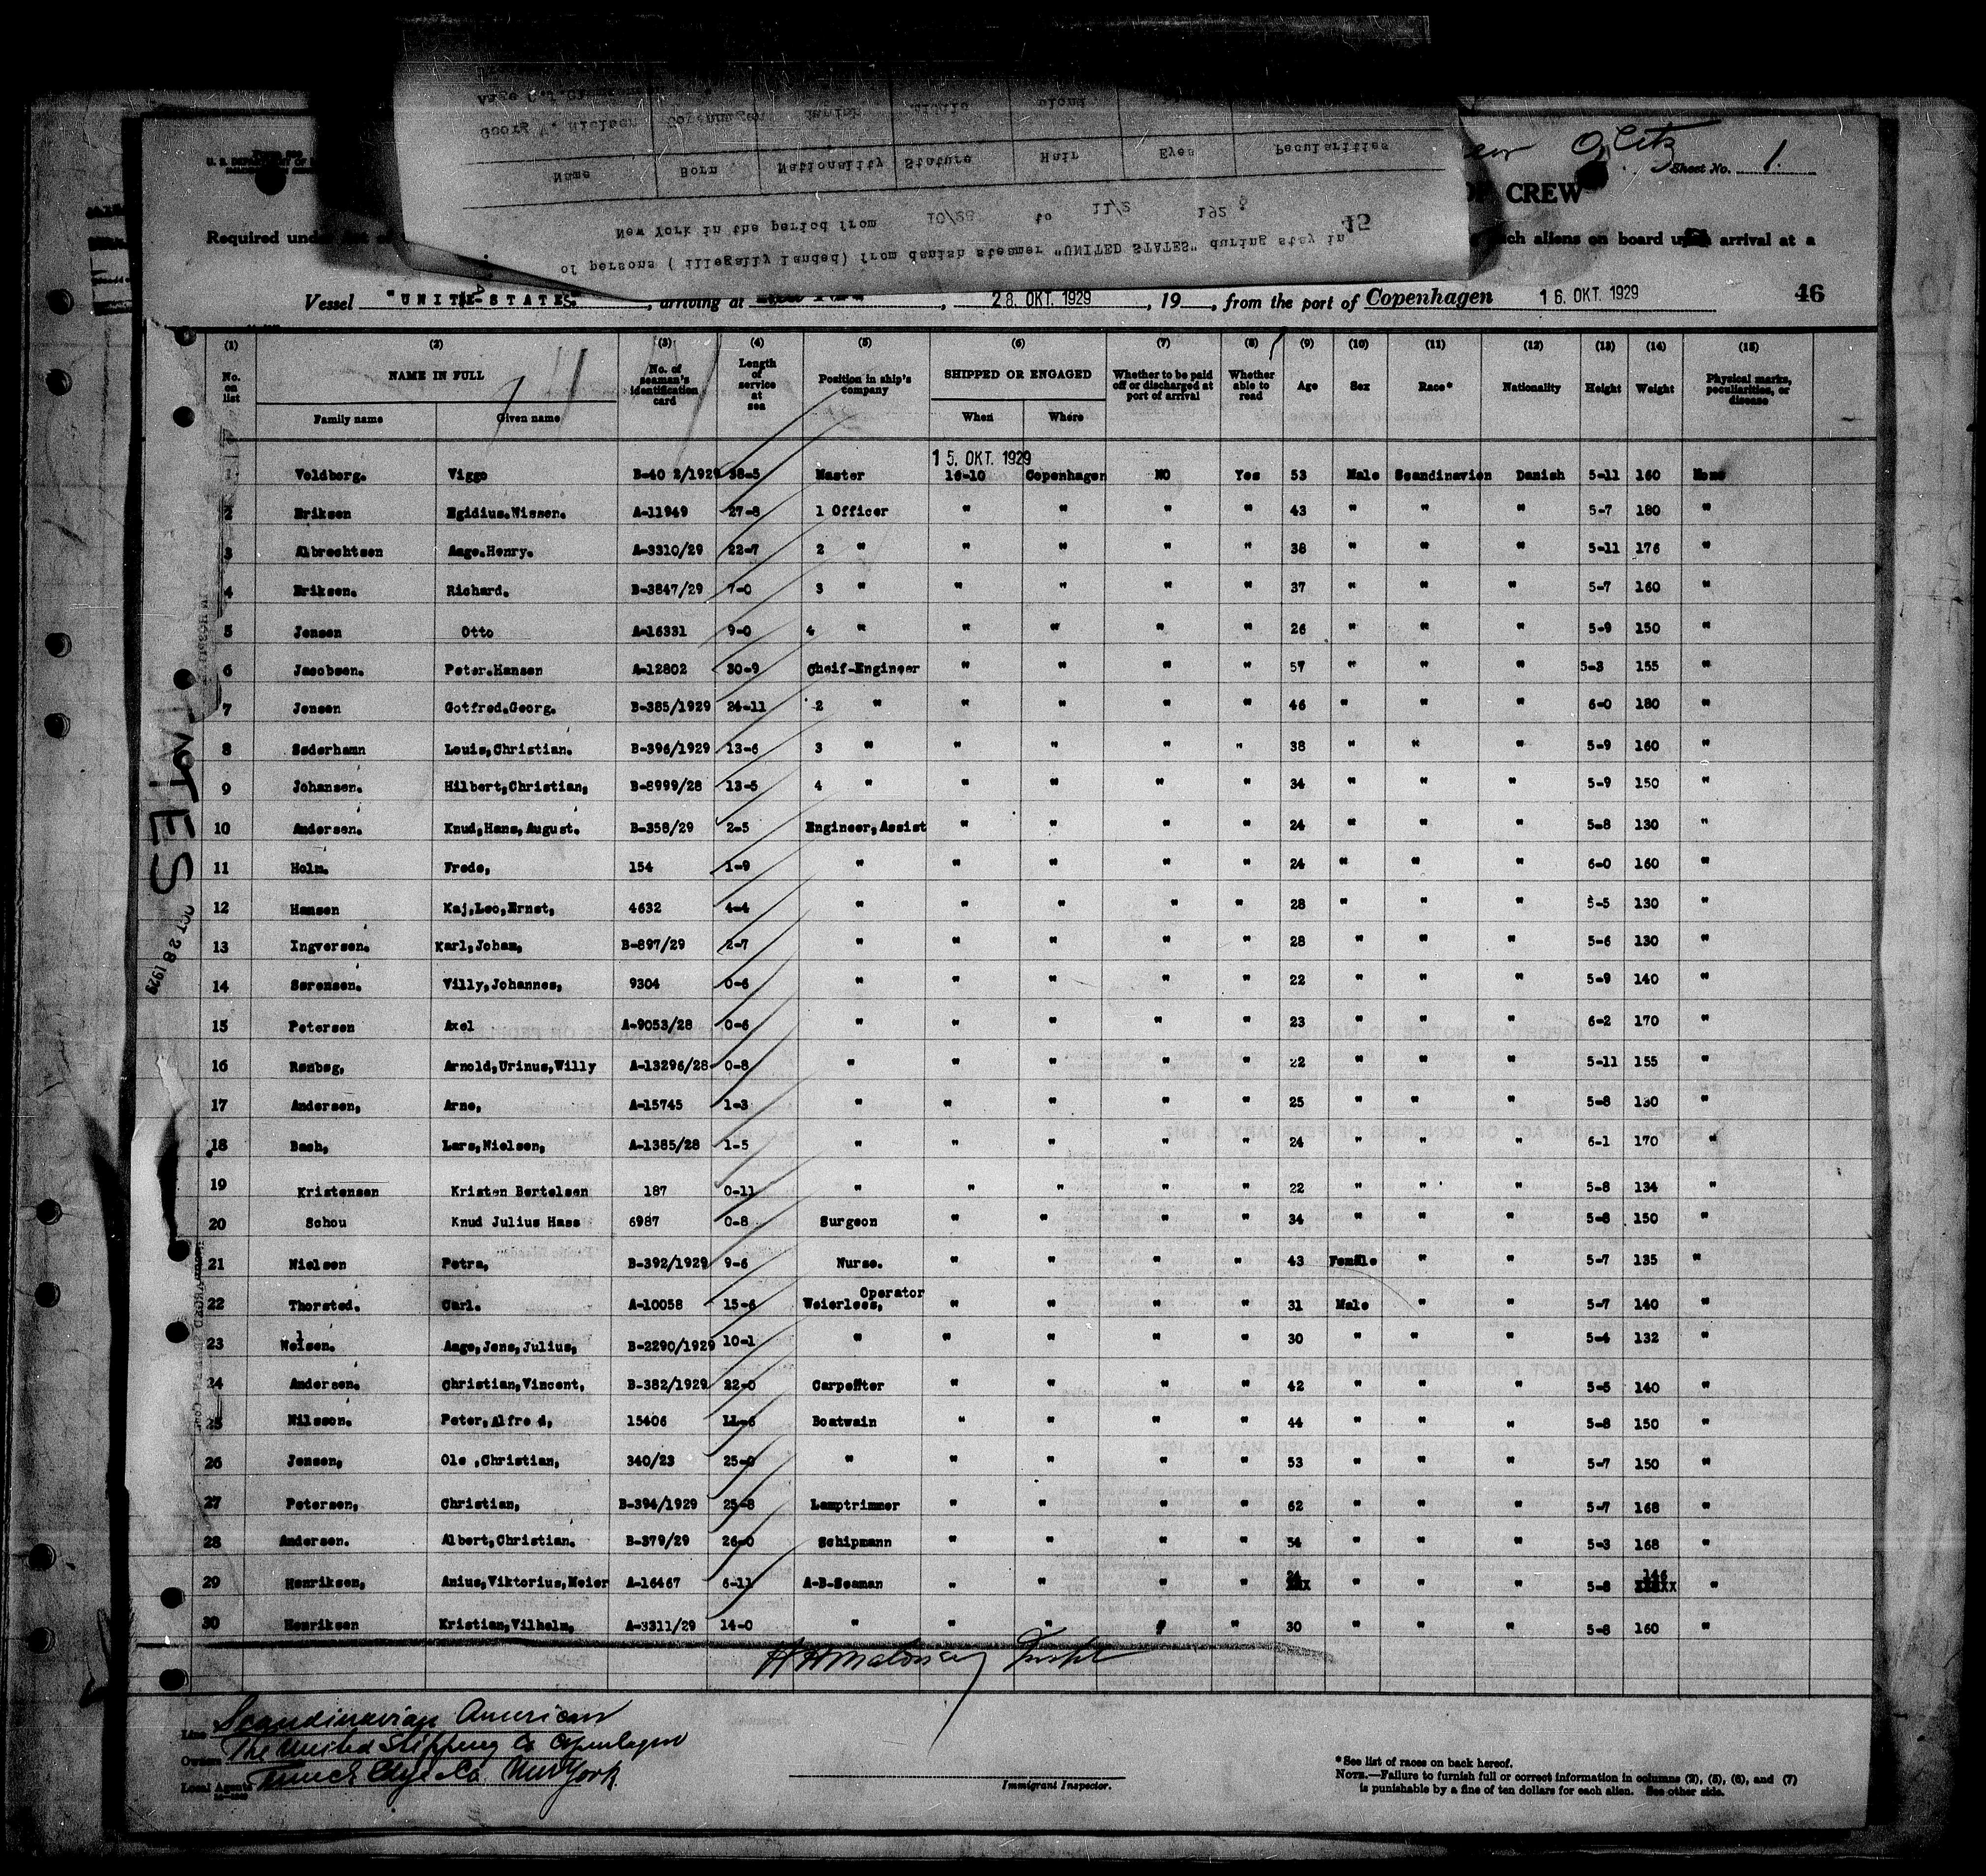 of persons ( illegally landed) from danish steamer "UNITED STATES" during stay in
New York in the period from 10/28 to 11/2 192
45
Name Born Nationality Stature Hair Eyes Pecularities
Georg Nielsen Copenhagen danish middle blond
Sheet No. 1.
OF CREW
Required under
such aliens on board upon arrival at a
Vessel "UNITED STATES", arriving at New York, 28. OKT. 1929, 19 , from the port of Copenhagen 16. OKT. 1929
46
(1) (2) (3) (4) (5) (6) (7) (8) (9) (10) (11) (12) (13) (14) (15)
No. on list NAME IN FULL No. of seaman's identification card Length of service at sea Position in ship's company SHIPPED OR ENGAGED Whether to be paid off or discharged at port of arrival Whether able to read Age Sex Race* Nationality Height Weight Physical marks, peculiarities, or disease
Family name Given name When Where
15. OKT. 1929
1 Veldborg. Viggo B-40 2/1929 38-5 Master 16-10 Copenhagen NO Yes 53 Male Scandinavien Danish 5-11 160 None
2 Eriksen Egidius.Wissen. A-11949 27-8 1 Officer " " " " 43 " " " 5-7 180 "
3 Albrechtsen Aage.Henry. A-3310/29 22-7 2 " " " " " 38 " " " 5-11 176 "
4 Eriksen. Richard. B-3847/29 7-0 3 " " " " " 37 " " " 5-7 160 "
5 Jensen Otto A-16331 9-0 4 " " " " " 26 " " " 5-9 150 "
6 Jacobsen. Peter.Hansen A-12802 30-9 Cheif-Engineer " " " " 57 " " " 5-3 155 "
7 Jensen Gotfred.Georg. B-385/1929 24-11 2 " " " " " 46 " " " 6-0 180 "
8 Søderhamn Louis,Christian. B-396/1929 13-6 3 " " " " " 38 " " " 5-9 160 "
9 Johansen. Hilbert,Christian, B-8999/28 13-5 4 " " " " " 34 " " " 5-9 150 "
10 Andersen. Knud,Hans,August. B-358/29 2-5 Engineer,Assist " " " " 24 " " " 5-8 130 "
11 Holm. Frede, 154 1-9 " " " " " 24 " " " 6-0 160 "
12 Hansen Kaj,Leo,Ernst, 4632 4-4 " " " " " 28 " " " 5-5 130 "
13 Ingversen. Karl,Johan, B-897/29 2-7 " " " " " 28 " " " 5-6 130 "
14 Sørensen. Villy,Johannes, 9304 0-6 " " " " " 22 " " " 5-9 140 "
15 Petersen Axel A-9053/28 0-6 " " " " " 23 " " " 6-2 170 "
16 Rønbøg, Arnold,Urinus,Willy A-13296/28 0-8 " " " " " 22 " " " 5-11 155 "
17 Andersen, Arne, A-15745 1-3 " " " " " 25 " " " 5-8 130 "
18 Bach, Lars,Nielsen, A-1385/28 1-5 " " " " " 24 " " " 6-1 170 "
19 Kristensen Kristen Bertelsen 187 0-11 " " " " " 22 " " " 5-8 134 "
20 Schou Knud Julius Hass 6987 0-8 Surgeon " " " " 34 " " " 5-8 150 "
21 Nielsen Petra, B-392/1929 9-6 Nurse. " " " " 43 Female " " 5-7 135 "
22 Thorsted. Carl. A-10058 15-6 Weierless, Operator " " " " 31 Male " " 5-7 140 "
23 Nelsen. Aage,Jens,Julius, B-2290/1929 10-1 " " " " " 30 " " " 5-4 132 "
24 Andersen. Christian,Vincent, B-382/1929 22-0 Carpenter " " " " 42 " " " 5-5 140 "
25 Nilsson. Peter,Alfre d, 15406 11-6 Boatwain " " " " 44 " " " 5-8 150 "
26 Jensen, Ole ,Christian, 340/23 25-0 " " " " " 53 " " " 5-7 150 "
27 Petersen, Christian, B-394/1929 25-8 Lamptrimmer " " " " 62 " " " 5-7 168 "
28 Andersen. Albert,Christian. B-379/29 26-0 Schipmann " " " " 54 " " " 5-3 168 "
29 Henriksen, Anius,Viktorius,Meier A-16467 6-11 A-B-Seaman " " " " 24 " " " 5-8 146 "
30 Henriksen Kristian,Vilhelm, A-3311/29 14-0 " " " " " 30 " " " 5-8 160 "
TATES
OCT 28 1929
Line Scandinavian American
Owners The United Shipping Co Copenhagen
Local Agents Funch Edye Co New York
Immigrant Inspector.
*See list of races on back hereof.
NOTE.—Failure to furnish full or correct information in columns (2), (5), (6), and (7)
is punishable by a fine of ten dollars for each alien. See other side.